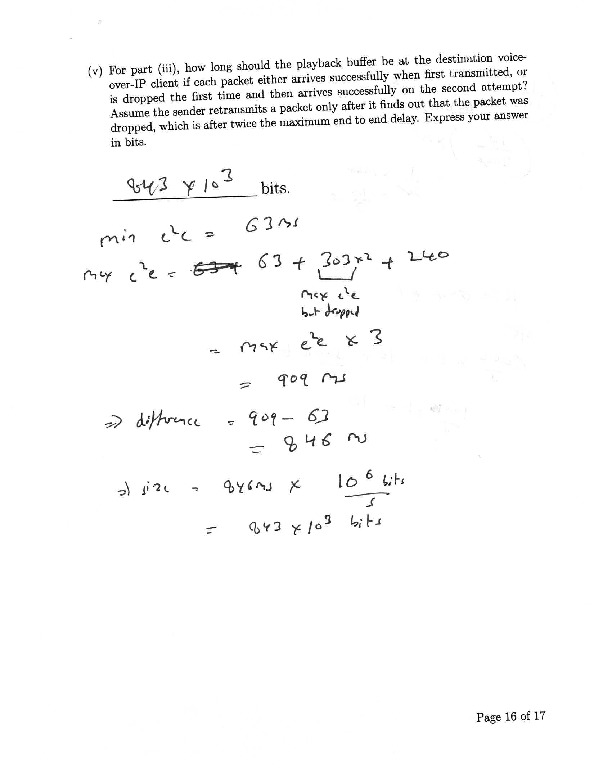 (v) For part (iii), how long should the playback buffer be at the destination voice-
over-IP client if each packet either arrives successfully when first transmitted, or
is dropped the first time and then arrives successfully on the second attempt?
Assume the sender retransmits a packet only after it finds out that the packet was
dropped, which is after twice the maximum end to end delay. Express your answer
in bits.
843 x 10³ bits.
min e²e = 63 ms
max e²e = 63 + 303x2 + 240
max e²e
but dropped
= max e²e x 3
= 909 ms
=> difference = 909 - 63
= 846 ms
=> size = 846ms x 10⁶ bits
s
= 843 x 10³ bits
Page 16 of 17